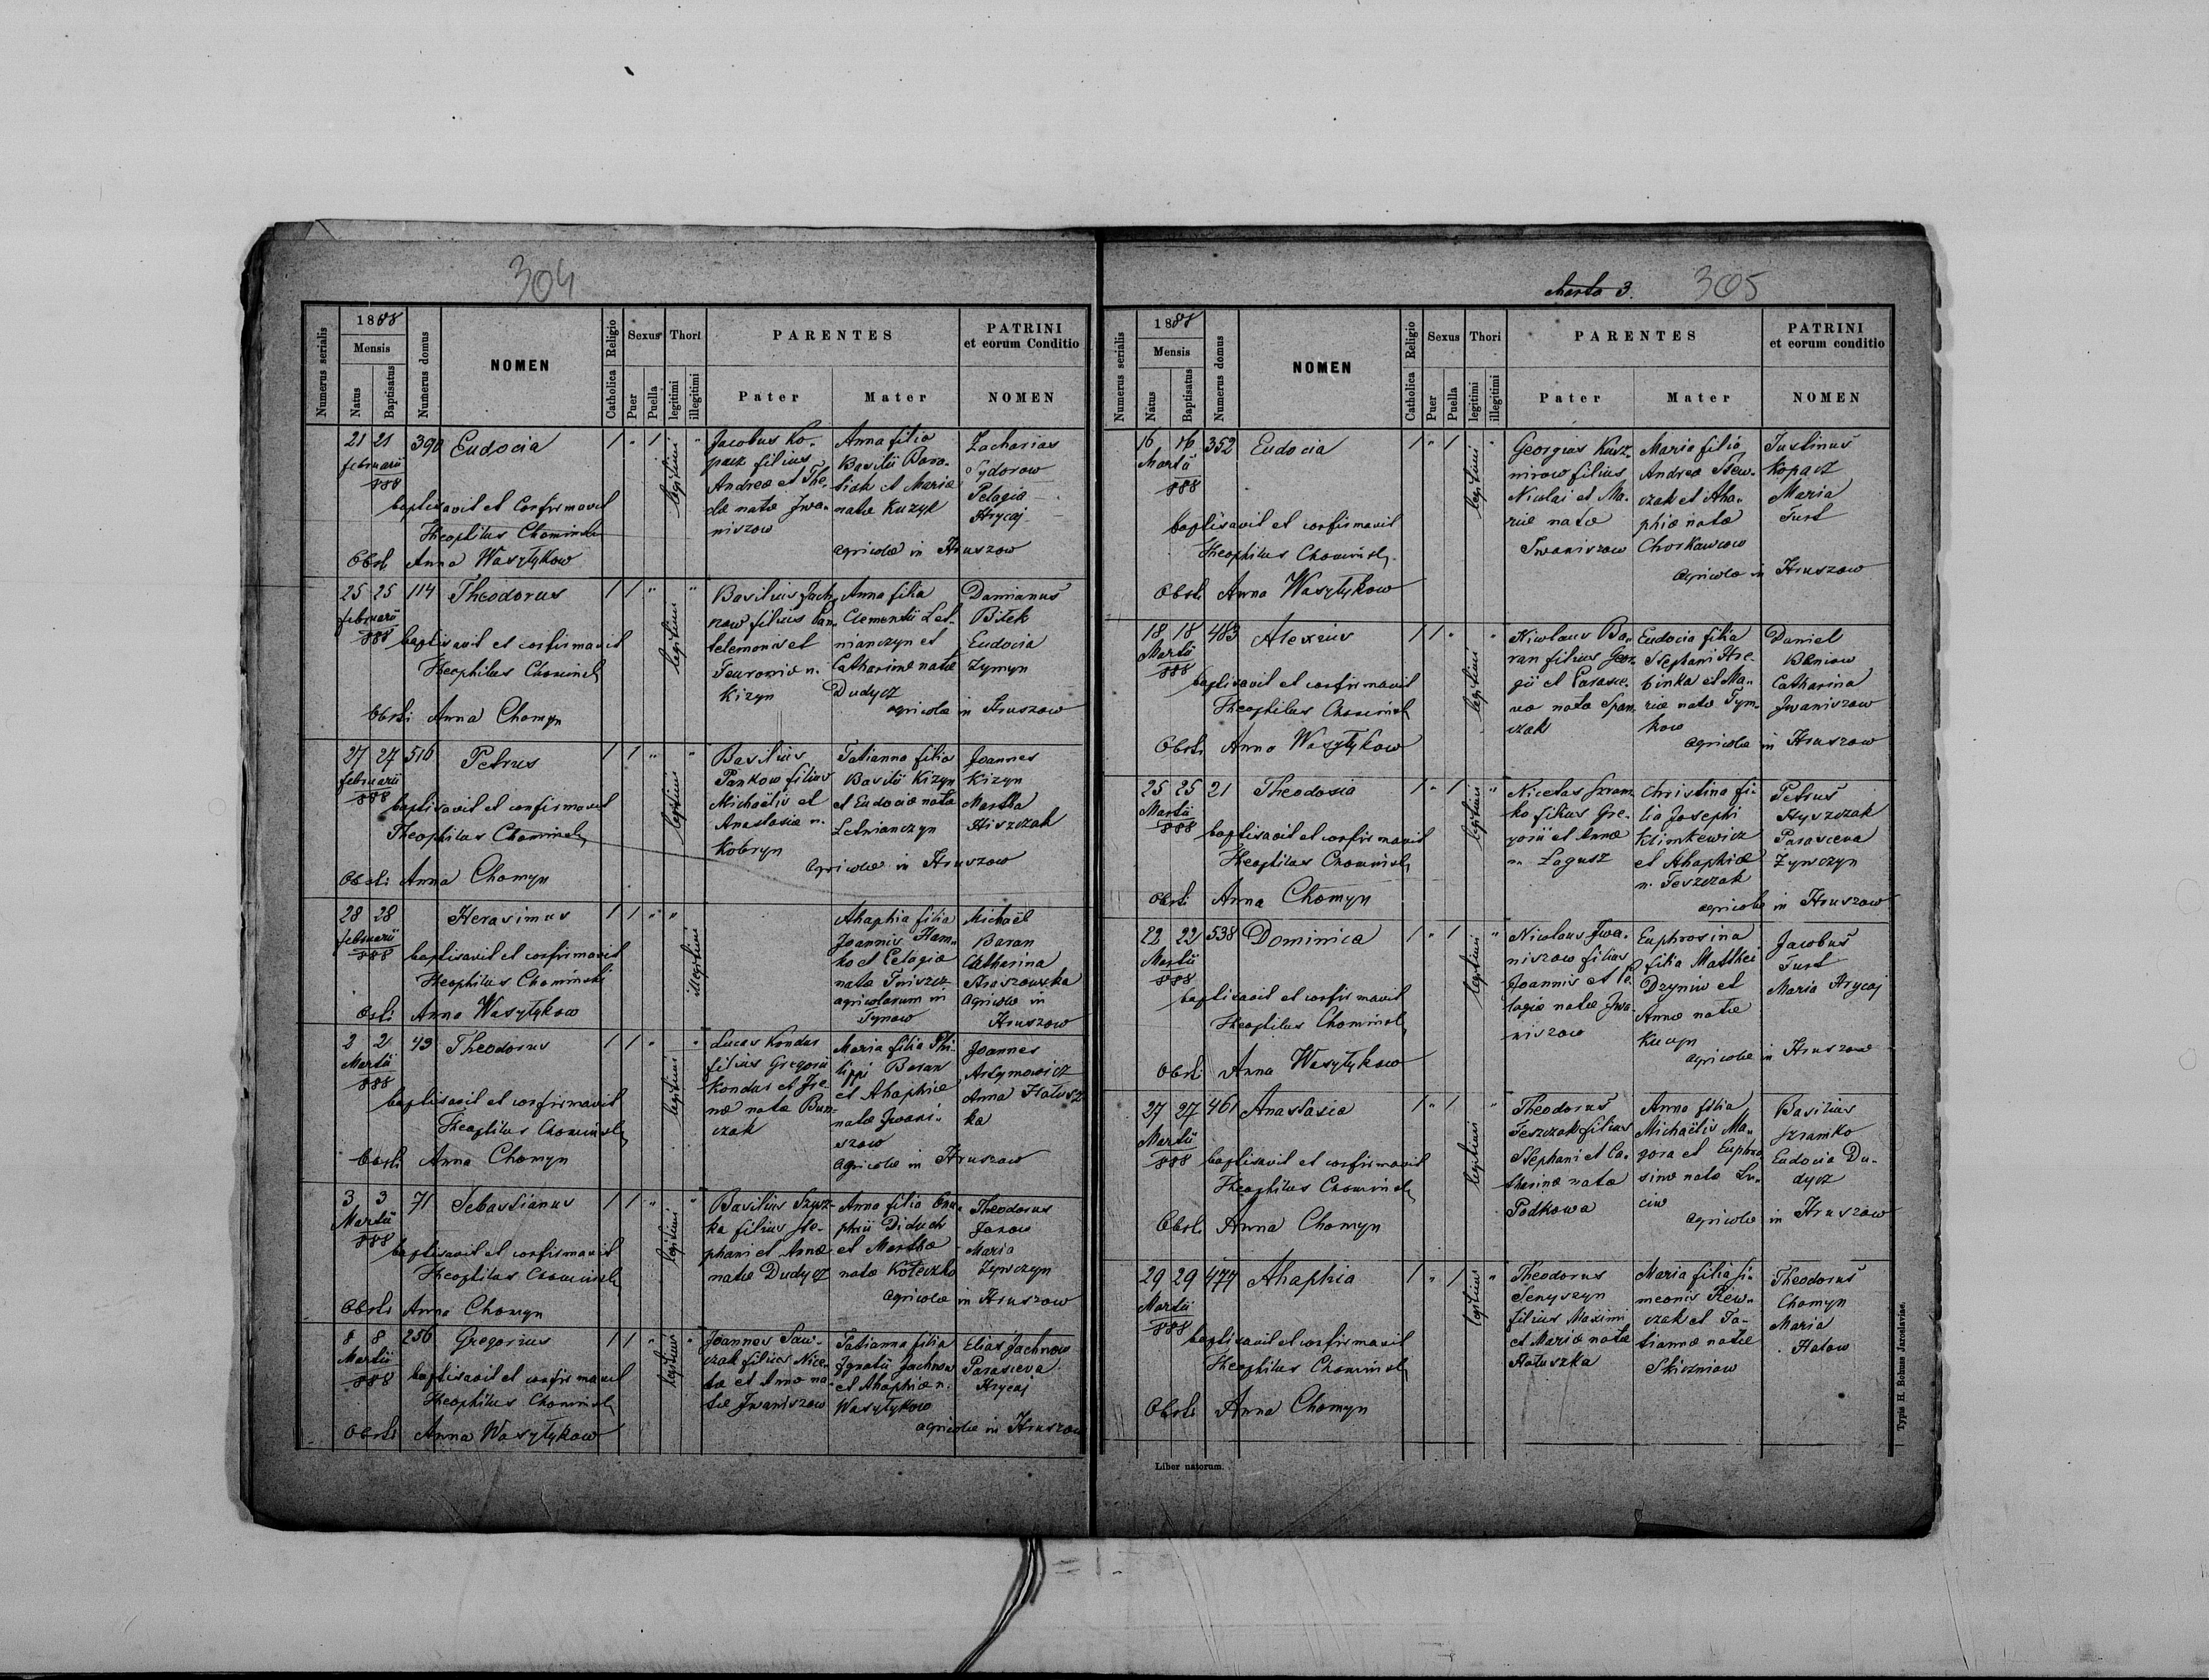 304
Numerus serialis
1888
Mensis
Natus
Baptisatus
Numerus domus
NOMEN
Religio
Catholica
Sexus
Puer
Puella
Thori
legitimi
illegitimi
PARENTES
Pater
Mater
PATRINI
et eorum Conditio
NOMEN
21 21 390 Eudocia
februarii
888
baptisavit et Confirmavit
Theophilus Chominski
Obst. Anna Wasyłykow
legitimi
Jacobus Ko-
pacz filius
Andreæ et The-
clæ natæ Iwa-
niszow
Anna filia
Basilii
et Mariæ
natæ Kuzyk
Zacharias
Sydorow
Pelagia
Hrycaj
agricolæ in Hruszow
25 25 114 Theodorus
februarii
888 baptisavit et confirmavit
Theophilus Chominski
Obsti Anna Chomyn
legitimi
Basilius Jach-
now filius Pan-
telemonis et
n.
Kizyn
Anna filia
Clementii Let-
nianczyn et
Catharinæ natæ
Dudycz
Damianus
Bilek
Eudocia
Zymyn
agricolæ in Hruszow
27 27 516 Petrus
februarii
888 baptisavit et confirmavit
Theophilus Chominski
Obsti Anna Chomyn
legitimi
Basilius
Pankow filius
Michaëlis et
Anastasiæ n.
Kobryn
Tatianna filia
Basilii Kizyn
et Eudociæ natæ
Letnianczyn
Joannes
Kizyn
Martha
Hiszczak
agricolæ in Hruszow
28 28 Herasimus
februarii
888 baptisavit et confirmavit
Theophilus Chominski
Osti Anna Wasyłykow
illegitimi
Ahaphia filia
Joannis Ham-
ko et Pelagiæ
natæ
agricolarum in
Tynow
Michaël
Baran
Catharina
Hruszowska
agricolæ in
Hruszow
2 2 43 Theodorus
Martii
888
baptisavit et confirmavit
Theophilus Chominski
Obsti Anna Chomyn
legitimi
Lucas Kondas
filius Gregorii
Kondas et Ire-
næ natæ Bun-
czak
Maria filia Phi-
lippi Baran
et Ahaphiæ
natæ Iwani-
szow
Joannes
Artymowicz
Anna Hałusz
ka
agricolæ in Hruszow
3 3 71 Sebastianus
Martii
888
baptisavit et confirmavit
Theophilus Chominski
Obsti Anna Chomyn
legitimi
Basilius
ka filius Ste-
phani et Annæ
natæ Dudycz
Anna filia Onu-
phrii Diduch
et Marthæ
natæ Koteczko
Theodorus
Maria
Zywczyn
agricolæ in Hruszow
8 8 256 Gregorius
Martii
888 baptisavit et confirmavit
Theophilus Chominski
Obsti Anna Wasyłykow
legitimi
Joannes Saw-
czak filius Nice-
tæ et Annæ na-
tæ Iwaniszow
Tatianna filia
Ignatii Jachnow
et Ahaphiæ n.
Wasyłykow
Elias Jachnow
Parasceva
Hrycaj
agricolæ in Hruszow
Charta 3.
305
Numerus serialis
1888
Mensis
Natus
Baptisatus
Numerus domus
NOMEN
Religio
Catholica
Sexus
Puer
Puella
Thori
legitimi
illegitimi
PARENTES
Pater
Mater
PATRINI
et eorum conditio
NOMEN
16 16 352 Eudocia
Martii
888
baptisavit et confirmavit
Theophilus Chominski
Obsti Anna Wasyłykow
legitimi
Georgius Kusz-
nirow filius
Nicolai et Ma-
riæ natæ
Iwaniszow
Maria filia
Andreæ
et Aha-
phiæ natæ
Chorkawcow
Justinus
Kopacz
Maria
Turl
agricolæ in Hruszow
18 18 483 Alexius
Martii
888
baptisavit et confirmavit
Theophilus Chominski
Obsti Anna Wasyłykow
legitimi
Nicolaus Ba-
ran filius Geor-
gii et Parasce-
væ natæ Span-
czak
Eudocia filia
Stephani Hre-
binka et Ma-
riæ natæ Tym-
kow
Daniel
Catharina
Iwaniszow
agricolæ in Hruszow
25 25 21 Theodosia
Martii
888 baptisavit et confirmavit
Theophilus Chominski
Obsti Anna Chomyn
legitimi
Nicetas Szram-
ko filius Gre-
gorii et Annæ
n. Łagusz
Christina fi-
lia Josephi
Klimkewicz
et Ahaphiæ
n. Teszczak
Petrus
Hyszczak
Parasceva
Zywczyn
agricolæ in Hruszow
22 22 538 Dominica
Martii
888
baptisavit et confirmavit
Theophilus Chominski
Obsti Anna Wasyłykow
legitimi
Nicolaus Iwa-
niszow filius
Joannis et Pe-
lagiæ natæ Iwa-
niszow
Euphrosina
filia Matthei
Dzyniw et
Annæ natæ
Kucyn
Jacobus
Turl
Maria Hrycaj
agricolæ in Hruszow
27 27 461 Anastasia
Martii
888 baptisavit et confirmavit
Theophilus Chominski
Obsti Anna Chomyn
legitimi
Theodorus
Teszczak filius
Stephani et Ca-
tharinæ natæ
Podkowa
Anna filia
Michaëlis Ma-
zora et Euphro
sinæ natæ Lu-
ciw
Basilius
Szramko
Eudocia Du-
dycz
agricolæ in Hruszow
29 29 477 Ahaphia
Martii
888
baptisavit et confirmavit
Theophilus Chominski
Obsti Anna Chomyn
legitimi
Theodorus
Senyszyn
filius Maximi
et Mariæ natæ
Hałuszka
Maria filia Si-
meonis
czak et Ta-
tiannæ natæ
Skiczniow
Theodorus
Chomyn
Maria
Hatow
Liber natorum.
Typis H. Bohuss Jaroslaviae.